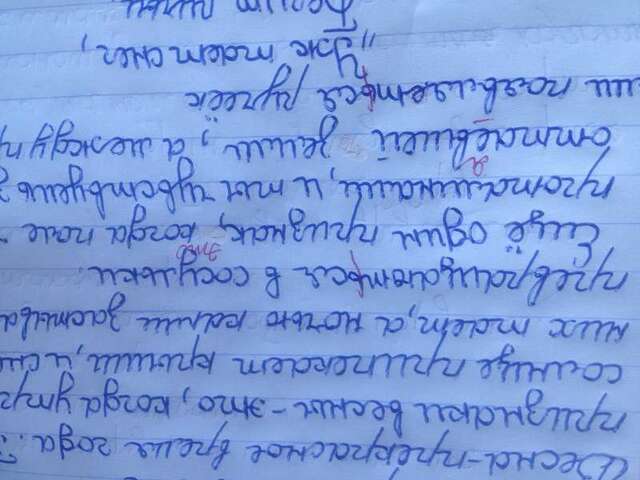 Весна-прекрасное время года. П
признаки весны - это, когда утр
солнце припекает крыши, и сне
них тает, а ночью капли застыва
превращаються в сосульки.
это
Ещё один признак, когда поле -
проталинами, и ты чувствуешь з
я
оттаевшей земли, а между п
ми появляеться ручеёк
„Уже тает снег,
Бегут ручьи